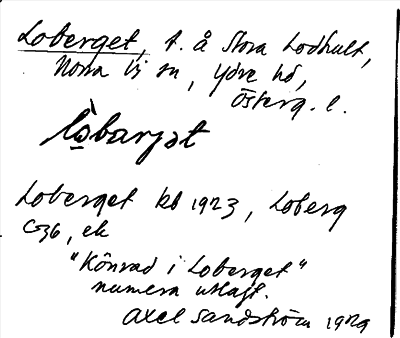 Loberget, t. å Stora Lodhult,
Norra Vi sn, Ydre hd,
Österg. l.
Lò̱barjət
Loberget kb 1923, Loberg
G36, ek
"Konrad i Loberget"
numera utlagt.
Axel Sandström 1929